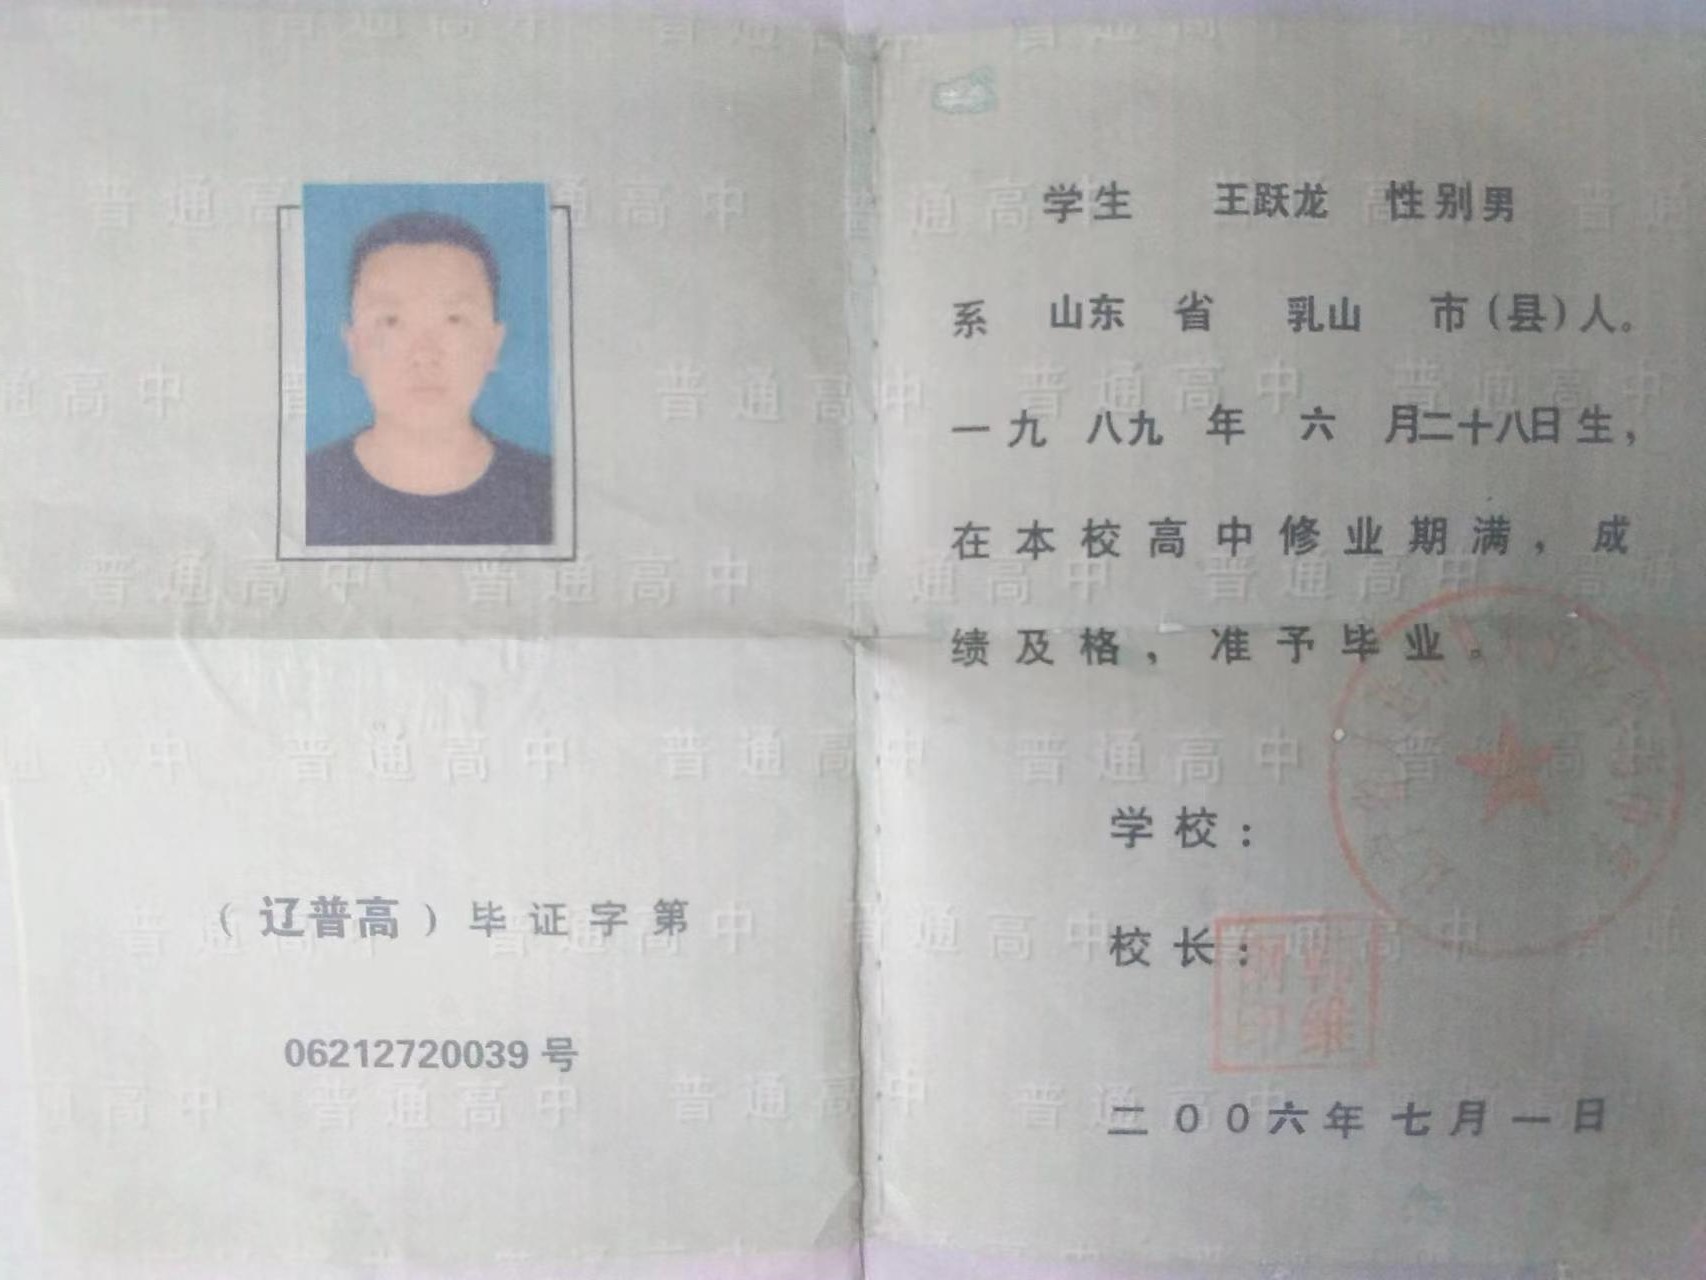 （辽普高）毕证字第
06212720039 号
学生 王跃龙 性别男
系 山东 省 乳山 市（县）人。
一九 八九 年 六 月二十八日生，
在本校高中修业期满，成
绩及格，准予毕业。
学校：
校长：
二００六年七月一日
普通高中